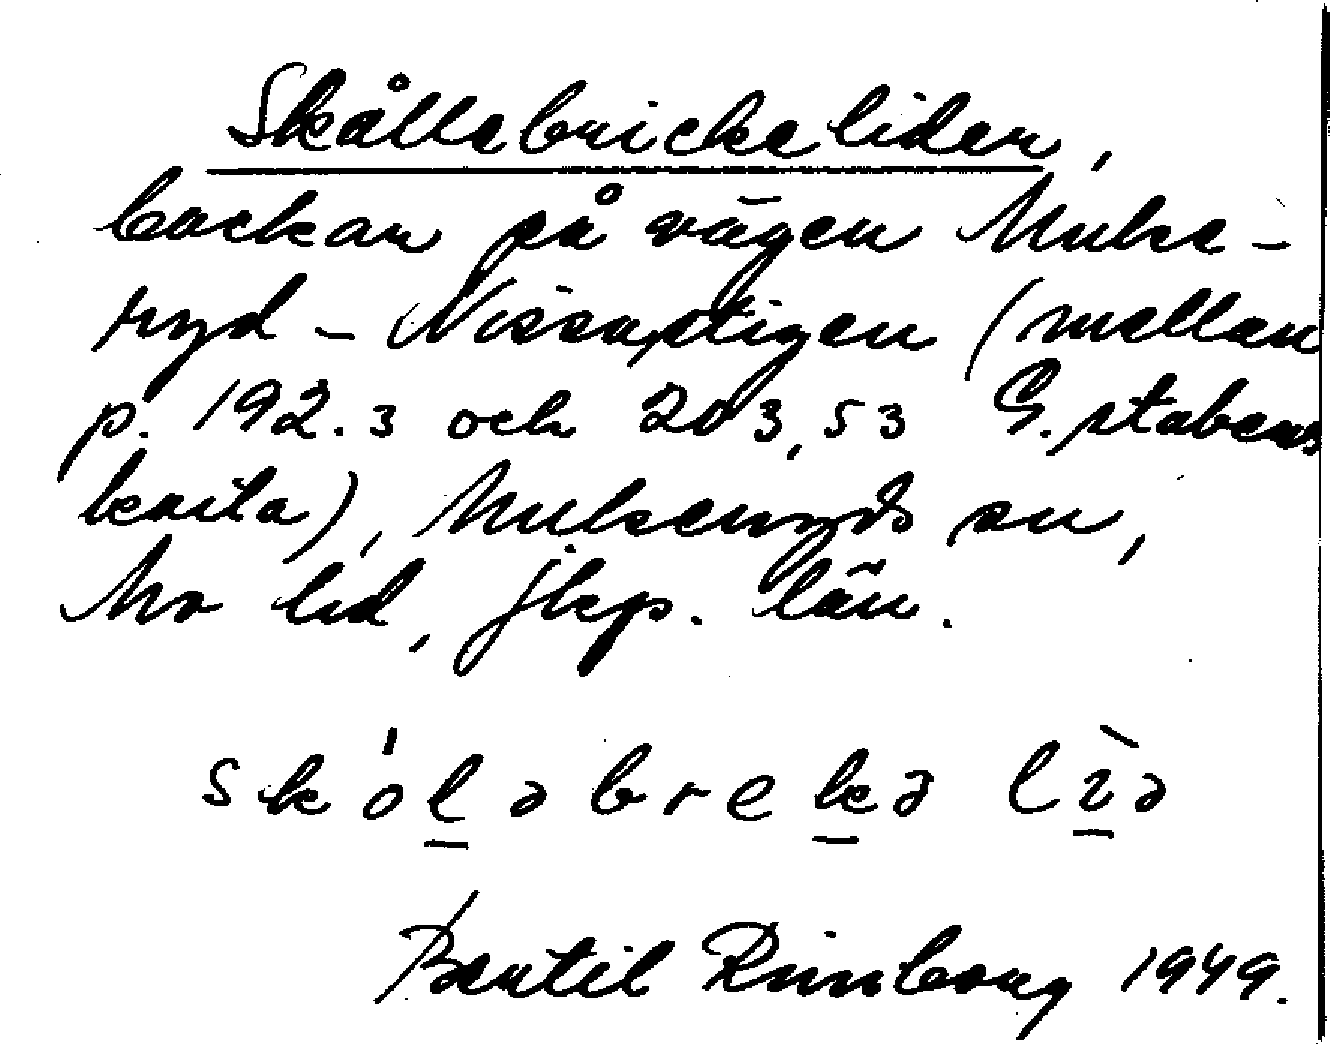 Skållebrickeliden,
backar på vägen Mulse-
ryd - Nissastigen (mellan
p. 192.3 och 203,53 G.stabens
karta), Mulseryds sn,
Mo hd, Jkp. län.
skólabreka lìa
Bertil Rimborg 1949.